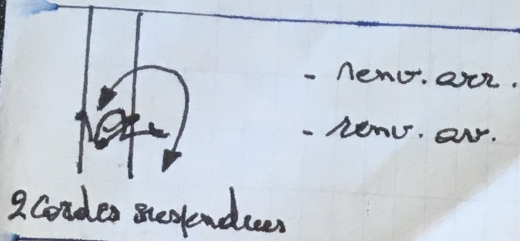 - renv. arr.
- renv. av.
2 cordes suspendues